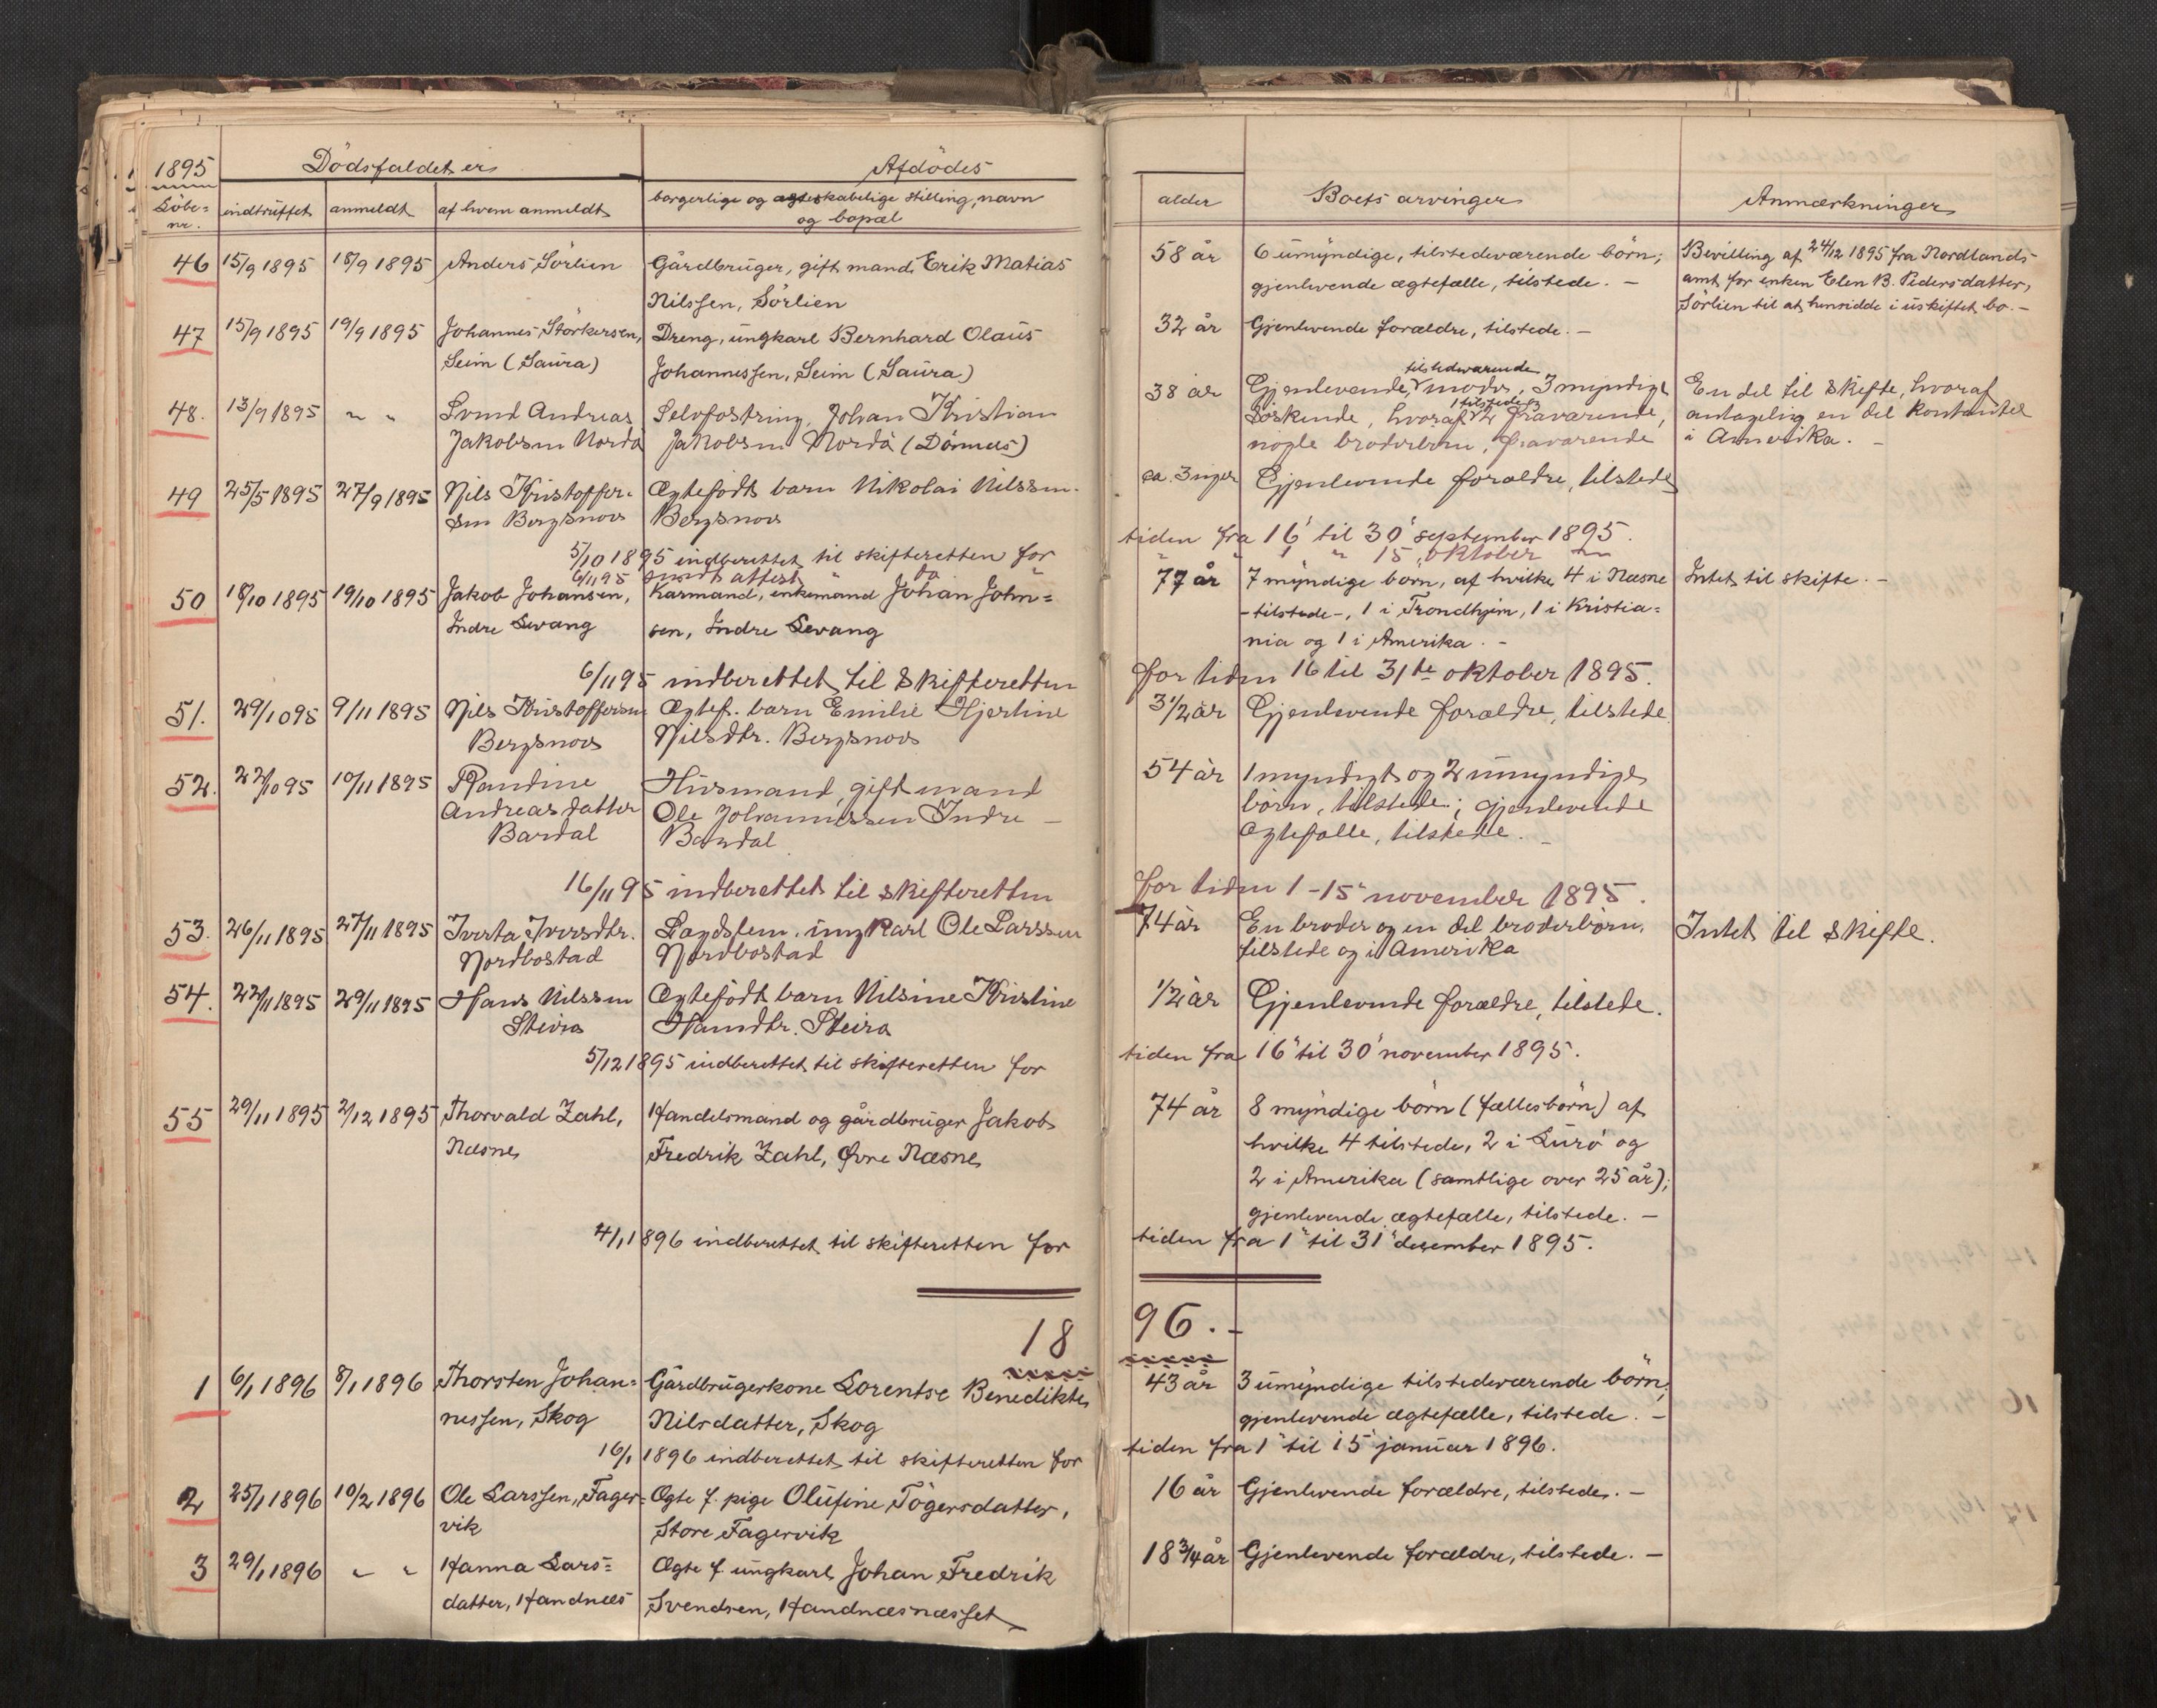 1895
Dödsfaldet er
Afdödes
Löbe-
nr.
indtruffet
anmeldt
af hvem anmeldt
borgerlige og ægteskabelige stilling, navn
og bopæl
alder
Boets arvinger
Anmærkninger
46 15/9 1895 18/9 1895 Anders Sörlien Gårdbruger, gift mand Erik Matias 58 år 6 umyndige, tilstedeværende börn; Bevilling af 24/12 1895 fra Nordlands
Nilssen, Sörlien gjenlevende ægtefælle, tilstede. – amt for enken Elen B. Pedersdatter,
Sörlien til at hensidde i uskiftet bo. –
47 15/9 1895 19/9 1895 Johannes Störkersen, Dreng, ungkarl Bernhard Olaus 32 år Gjenlevende forældre, tilstede. –
Seim (Saura) Johannessen, Seim (Saura)
tilstedeværende
48. 13/9 1895 " " Svend Andreas Selvfostring, Johan Kristian 38 år Gjenlevende moder, 3 myndige En del til skifte, hvoraf
1 tilstede
Jakobsen Nordå Jakobsen Nordå (Dönnes) Söskende, hvoraf 2 fraværende, antagelig en del kontanter
nogle broderbörn, fraværende i Amerika. –
49 25/5 1895 27/9 1895 Nils Kristoffer- Ægtefödt barn Nikolai Nilssen ca. 3 uger Gjenlevende forældre, tilstede
sen Bergsnov Bergsnov
5/10 1895 indberettet til skifteretten for tiden fra 16' til 30' september 1895.
6/11 95 sendt attest " do " " " 1 " 15' oktober "
50 18/10 1895 19/10 1895 Jakob Johansen, Karmand, enkemand Johan John- 77 år 7 myndige börn, af hvilke 4 i Næsne Intet til skifte. –
Indre Levang sen, Indre Levang – tilstede –, 1 i Trondhjem, 1 i Kristia-
nia og 1 i Amerika. –
6/11 95 indberettet til Skifteretten for tiden 16 til 31te oktober 1895.
51. 29/10 95 9/11 1895 Nils Kristoffersen Ægtef. barn Emilie Hjertine 3 1/2 år Gjenlevende forældre, tilstede.
Bergsnov Nilsdtr. Bergsnov
52. 22/10 95 10/11 1895 Randine Husmand, gift mand 54 år 1 myndigt og 2 umyndige
Andreasdatter Ole Johannessen Indre – börn, tilstede; gjenlevende
Bardal Bardal ægtefælle, tilstede. –
16/11 95 indberettet til skifteretten for tiden 1 – 15' november 1895.
53. 26/11 1895 27/11 1895 Iverta Iversdtr. Lægdslem, ungkarl Ole Larssen 74 år En broder og en del broderbörn, Intet til skifte.
Nordbostad Nordbostad tilstede og i Amerika
54. 22/11 1895 29/11 1895 Hans Nilssen Ægtefödt barn Nilsine Kristine 1/2 år Gjenlevende forældre, tilstede.
Steira Hansdtr. Steira
5/12 1895 indberettet til skifteretten for tiden fra 16' til 30' november 1895.
55 29/11 1895 2/12 1895 Thorvald Zahl, Handelsmand og gårdbruger Jakob 74 år 8 myndige börn (fællesbörn) af
Næsne Fredrik Zahl, Øvre Næsne hvilke 4 tilstede, 2 i Lurö og
2 i Amerika (samtlige over 25 år);
gjenlevende ægtefælle, tilstede. –
4/1 1896 indberettet til skifteretten for tiden fra 1' til 31' desember 1895.
1896. –
1 6/1 1896 8/1 1896 Thorsten Johan- Gårdbrugerkone Lorentse Benedikte 43 år 3 umyndige tilstedeværende börn;
nessen, Skog Nilsdatter, Skog gjenlevende ægtefælle, tilstede. –
16/1 1896 indberettet til skifteretten for tiden fra 1' til 15' januar 1896.
2 25/1 1896 10/2 1896 Ole Larssen, Fager- Ægte f. pige Olufine Tögersdatter, 16 år Gjenlevende forældre, tilstede. –
vik Store Fagervik
3 29/1 1896 " " Hanna Lars- Ægte f. ungkarl Johan Fredrik 18 3/4 år Gjenlevende forældre, tilstede. –
datter, Handnæs Svendsen, Handnæsnæsset